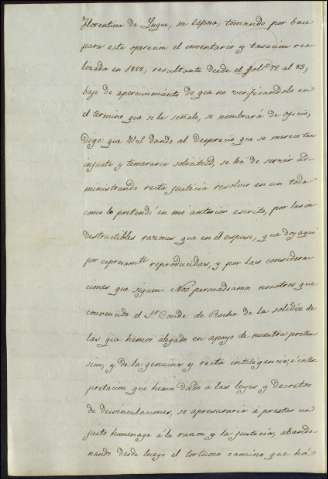 Florentina de Luque, su esposa, tomando por base
para esta operacion el inventario y tasacion rea-
lizada en 1818, resultante desde el fol.º 78 al 83,
bajo de apercivimiento de que no verificandolo en
el termino que se le señale, se nombrará de oficio,
Digo: que Vd dando al desprecio que se merece tan
injusta y temeraria solicitud, se ha de servir ad-
ministrando recta justicia resolver en un todo
como lo pretendí en mi anterior escrito, por las in-
destructibles razones que en el espuse, que doy aqui
por espresamte reproducidas, y por las considera-
ciones que siguen. Nos persuadiamos nosotros que
convencido el Sr. Conde de de la solidéz de
las que hemos alegado en apoyo de nuestra preten-
sion, y de la genuina y recta inteligencia é inter-
pretacion que hemos dado a las leyes y decretos
de desvinculaciones, se apresuraria á prestar un
justo homenage á la razon y la justicia, abando-
nando desde luego el tortuoso camino que há